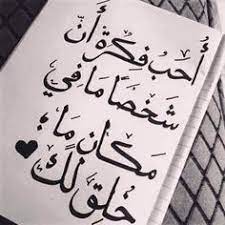 أُحبُ فِكرَة أنّ
شخصًا ما في
مكانٍ ما ؛
خُلِق لَك